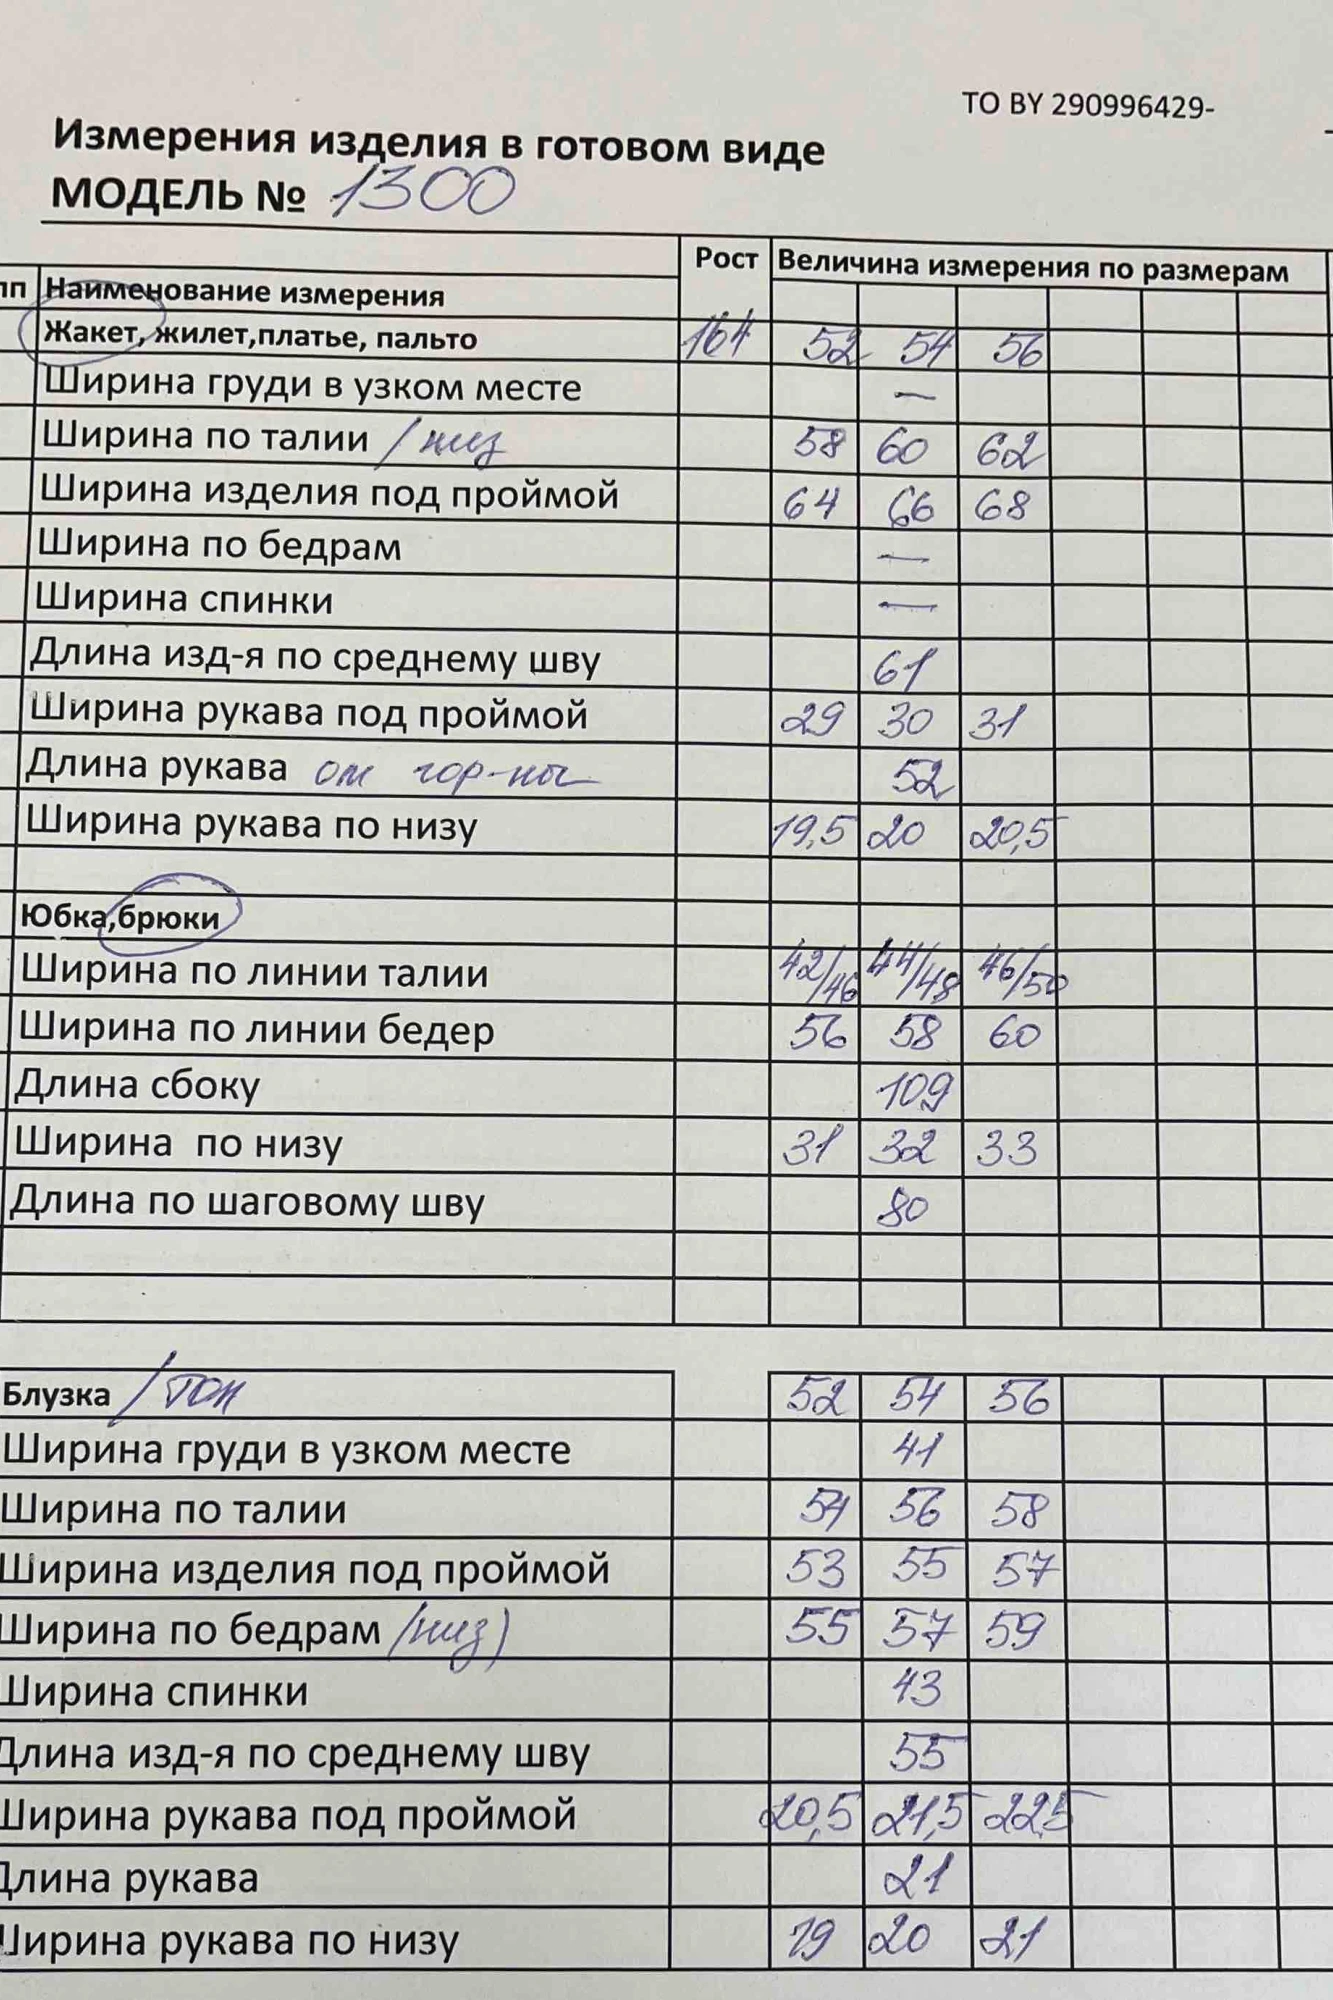 ТО BY 290996429-
Измерения изделия в готовом виде
МОДЕЛЬ № 1300
Рост Величина измерения по размерам
пп Наименование измерения
Жакет, жилет,платье, пальто 164 52 54 56
Ширина груди в узком месте —
Ширина по талии /низ 58 60 62
Ширина изделия под проймой 64 66 68
Ширина по бедрам —
Ширина спинки —
Длина изд-я по среднему шву 61
Ширина рукава под проймой 29 30 31
Длина рукава от гор-ны 52
Ширина рукава по низу 19,5 20 20,5
Юбка,брюки
Ширина по линии талии 42/46 44/48 46/50
Ширина по линии бедер 56 58 60
Длина сбоку 109
Ширина по низу 31 32 33
Длина по шаговому шву 80
Блузка /топ 52 54 56
Ширина груди в узком месте 41
Ширина по талии 54 56 58
Ширина изделия под проймой 53 55 57
Ширина по бедрам /низ) 55 57 59
Ширина спинки 43
Длина изд-я по среднему шву 55
Ширина рукава под проймой 20,5 21,5 22,5
Длина рукава 21
Ширина рукава по низу 19 20 21